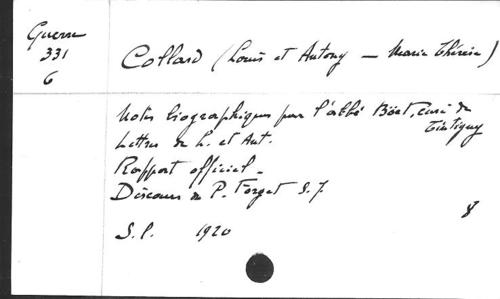 Guerre
331
6
Collard (Louis et Antony — Marie Thérèse)
Notes biographiques par l'abbé Böet, curé de
Tintigny
Lettres de L. et Ant.
Rapport officiel -
Discours du P. Forget S.J.
8
S.l. 1920